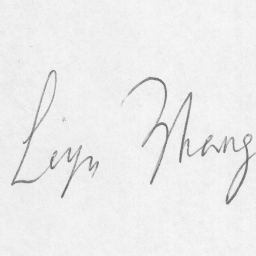 Liyn Zhang